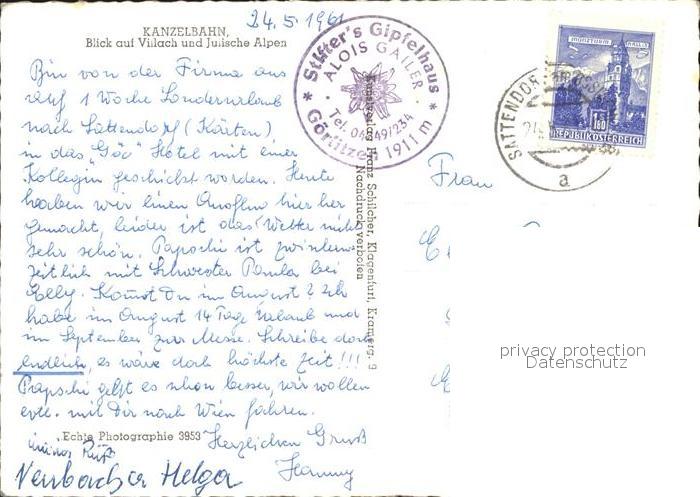 24.5.1961
KANZELBAHN,
Blick auf Villach und Julische Alpen
Bin von der Firma aus
auf 1 Woche Sonderurlaub
nach Sattendorf (Kärnten)
in das Hotel mit einer
Kollegin geschickt worden. Heute
haben wir einen hierher
gemacht, leider ist das Wetter nicht
sehr schön. Papschi ist zwischen
zeitlich mit Schwester Paula bei
Elly. Kommst Du im August? Ich
habe im August 14 Tage Urlaub und
im September zur Messe. Schreibe doch
endlich, es wäre doch höchste Zeit!!!
Papschi geht es schon besser, wir wollen
evtl. mit Dir nach Wien fahren.
Echte Photographie 3953
Herzlichen Gruß
Helga
Stifter's Gipfelhaus
ALOIS GAILER
Görlitzen 1911 m
Kunstverlag Franz Schilcher, Klagenfurt, Kramerg. 9
Nachdruck verboten
SATTENDORF
a
1.80
REPUBLIK ÖSTERREICH
Frau
privacy protection
Datenschutz